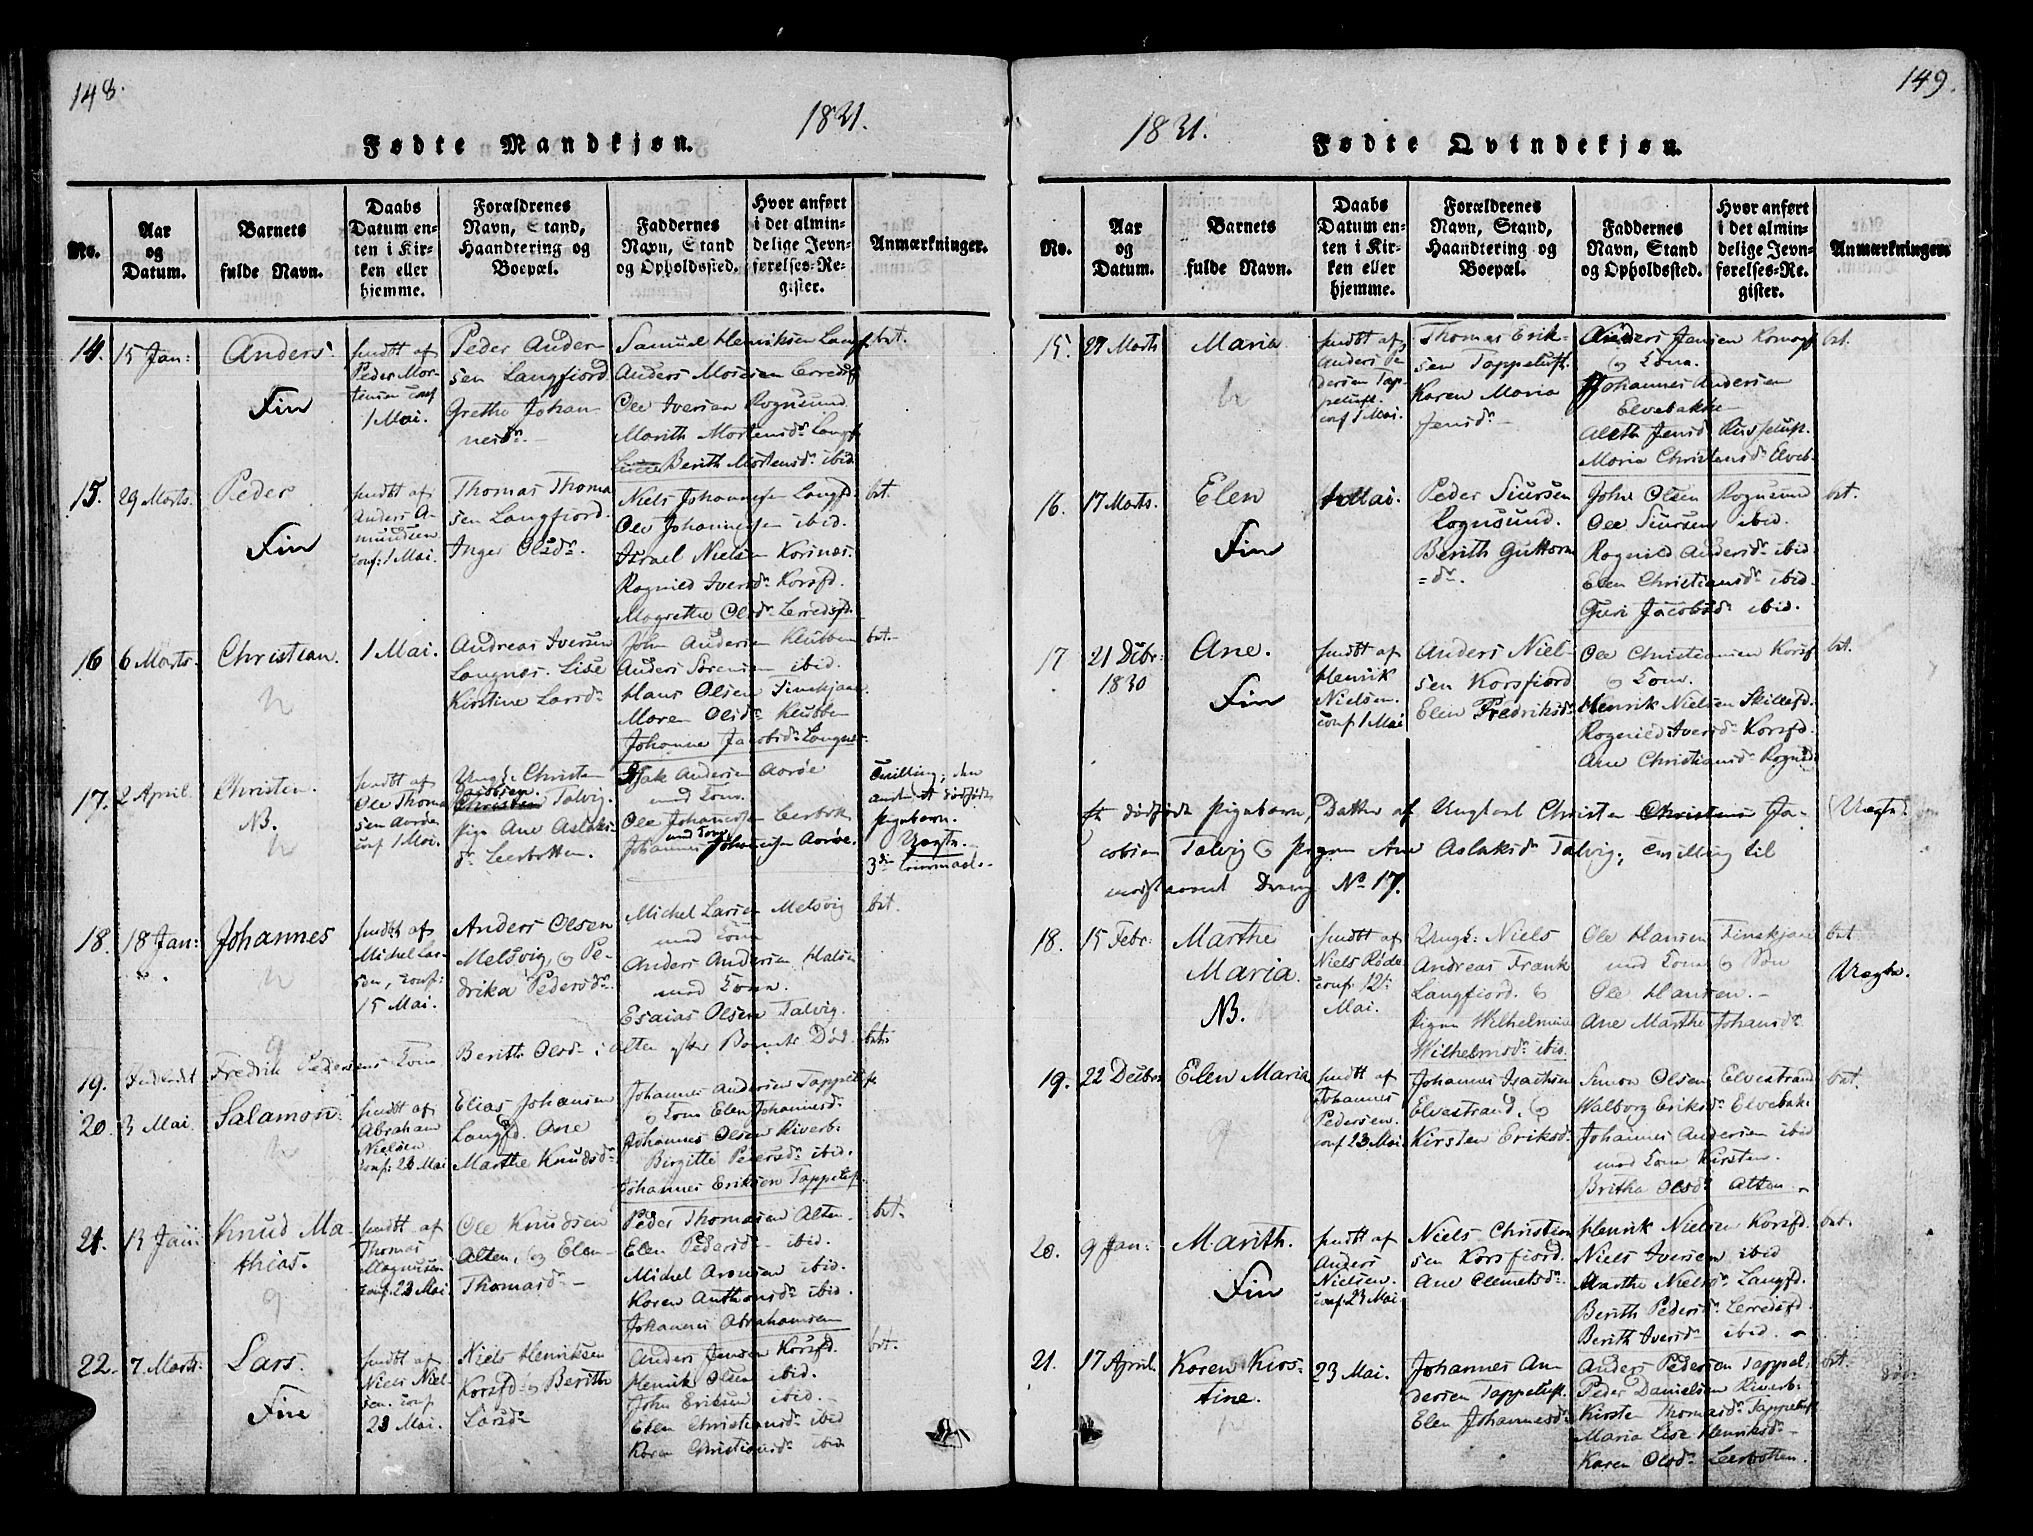 148.
1831.
Fødte Mandkjøn.
No.
Aar
og
Datum.
Barnets
fulde Navn.
Daabs
Datum en-
ten i Kir-
ken eller
hjemme.
Forældrenes
Navn, Stand,
Haandtering og
Boepæl.
Faddernes
Navn, Stand
og Opholdssted.
Hvor anført
i det almin-
delige Jevn-
førelses-Re-
gister.
Anmærkninger.
14. 15 Jan:
Anders.
Fin
hmdt af
Peder Mor-
tensen conf
1 Mai.
Peder Ander-
sen Langfjord
Grethe Johan-
nesdr. -
Samuel Henriksen Langf.
Anders Mosesen Lerredsf
Ole Iversen Rognsund
Marith Mortensdr Langf
Berith Mortensdr ibid
bet.
15. 29 Marts.
Peder
Fin
hmdt af
Anders A-
mundsen
conf: 1 Mai.
Thomas Thoma
sen Langfjord.
Inger Olsdr.
Niels Johannesen Langfd.
Ole Johannesen ibid.
Israel Nielsen Korsnæs.
Ragnild Iversdr Korsfd.
Magrethe Olsdr Lerredsfd.
bet.
16 6 Marts.
Christian.
1 Mai.
Andreas Iversen
Langnes. Lise
Kirstine Larsdr
John Andersen Klubben
Anders Sørensen ibid.
Hans Olsen Finskjaan.
Maren Olsdr Klubben
Johanne Jacobsdr Langnes.
bet.-
17. 2 April
Christen.
NB.
hmdt af
Ole Thoma
sen Aarøe
conf 1 Mai.
Ungk: Christen
Jacobsen
Christen Talvig.
Pige Ane Aslaks-
dr Leerbotten.
Isak Andersen Aarøe
med Kone.
Ole Johannesen Leerbotn
med Kone
Johannes Johannesen Aarøe.
Tvilling; den
anden et dødfødt
Pigebarn.
Uægte.
3die Leiermaal.-
18. 18 Jan:
Johannes
hmdt af
Michel Lar-
sen, conf:
15 Mai.
Anders Olsen
Melsvig, og Pe-
drika Pedersdr.
Michel Larsen Melsvig
med Kone
Anders Andersen
med Kone.
Esaias Olsen Talvig.
bet.
19. Indledet Fredrik Pedersens Kone Berith Olsdr i Alten efter Barnets Død. bet.
20. 3 Mai.
Salamon.
hmdt af
Abraham
Nielsen
conf: 23 Mai
Elias Johansen
Langfd. Ane
Marthe Knudsdr
Johannes Andersen Tappeluft.
og Kone Elen Johannesdr
Johannes Olsen Kiverb:
Birgitte Petersdr ibid.
Johannes Eriksen Tappeluft.
21. 13 Jan:
Knud Ma-
thias.
hmdt af
Thomas
Magnusen
conf 23 Mai
Ole Knudsen
Alten, og Elen
Thomasdr -
Peder Thomasen Alten.
Elen Pedersdr ibid.
Michel Aronsen ibid.
Karen Anthonsdr ibid.
Johannes Abrahamsen
bet.
22. 7 Marts.
Lars.
Fin
hmdt af
Niels Niel-
sen. conf
23 Mai.
Niels Henriksen
Korsfd. og Berith
Larsdr
Anders Jensen Korsfd.
Henrik Olsen ibid.
John Eriksen ibid.
Elen Christiansdr ibid
Karen Christiansdr ibid
bet.
149.
1831.
Fødte Qvindekjøn.
No.
Aar
og
Datum.
Barnets
fulde Navn.
Daabs
Datum en-
ten i Kir-
ken eller
hjemme.
Forældrenes
Navn, Stand,
Haandtering og
Boepæl.
Faddernes
Navn, Stand
og Opholdssted.
Hvor anført
i det almin-
delige Jevn-
førelses-Re-
gister.
Anmærkninger
15. 29 Marts
Maria
hmdt af
Anders Pe-
dersen Tap-
peluft.
conf 1 Mai.
Thomas Erik-
sen Tappeluft.
Karen Maria
Jensdr -
Anders Jensen
og Kone.
Johannes Andersen
Elvebakke
Aleth Jensd Russeluft.
Maria Christensdr Elveb
bet.
16. 17 Marts.
Elen
Fin
1 Mai.
Peder Siursen
Rognsund.
Berith Guttorm
=dr.
John Olsen Rognsund
Ole Siursen ibid.
Ragnild Andersdr ibid
Elen Christiansdr ibid.
Guri Jacobsdr ibid.
bet.
17 21 Decbr:
1830
Ane.
Fin
hmdt af
Henrik
Nielsen.
conf 1 Mai
Anders Niel-
sen Korsfjord
Elen Fredriksdr
Ole Christiansen Korsf
og Kone.
Henrik Nielsen Skillefd.
Ragnild Iversdr Korsfd.
Ane Christiansdr Rognsd
bet.
Et dødfødt Pigebarn, Datter af Ungkarl Christen Christensen Ja-
cobsen Talvig og Pigen Ane Aslaksdr Talvig; Tvilling til
modstaaende Dreng No 17.
(Uægte)
18. 15 Febr:
Marthe
Maria.
NB.
hmdt af
Niels Røde
conf 12te
Mai.
Ungk: Niels
Andreas Frank
Langfjord. og
Pigen Wilhelmine
Wilhelmsdr ibid.
Ole Hansen Finskjaan
med Kone og Søn
Ole Hansen. -
Ane Marthe Johansdr
bet
Uægte.
19. 22 Decbr
Elen Maria
hmdt af
Johannes
Pedersen.
conf 23 Mai
Johannes Isachsen
Elvestrand, og
Kirsten Eriksdr
Simon Olsen Elvestrand
Walborg Eriksdr Elvebak.
Johannes Andersen ibid
med Kone Kirsten.
Britha Olsdr Alten. -
bet.
20. 9 Jan:
Marith.
Fin
hmdt af
Anders
Nielsen.
conf 23 Mai
Niels Christian
sen Korsfjord.
Ane Clemetsdr.
Henrik Nielsen Korsfd.
Niels Iversen ibid
Marthe Nielsdr Langfd.
Berith Pedersdr Lerredsfd.
Berith Iversdr ibid. -
bet.
21. 17 April.
Karen Kirs-
tine.
23 Mai.
Johannes An-
dersen Tappeluft.
Elen Johannesdr
Anders Pedersen Tappel:
Peder Danielsen Kiverb:
Kirsten Thomasdr Tappeluft
Maria Lise Henriksdr -
Karen Olsdr Leerbotten.
bet.